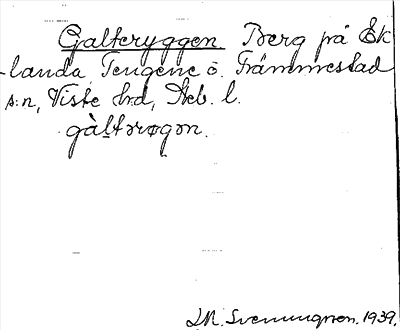 Galteryggen. Berg på Ek
-landa, Tengene o. Främmestad
s:n, Viste hrd, Skb. l.
gàltərøgən.
J.M. Svenungsson. 1939.